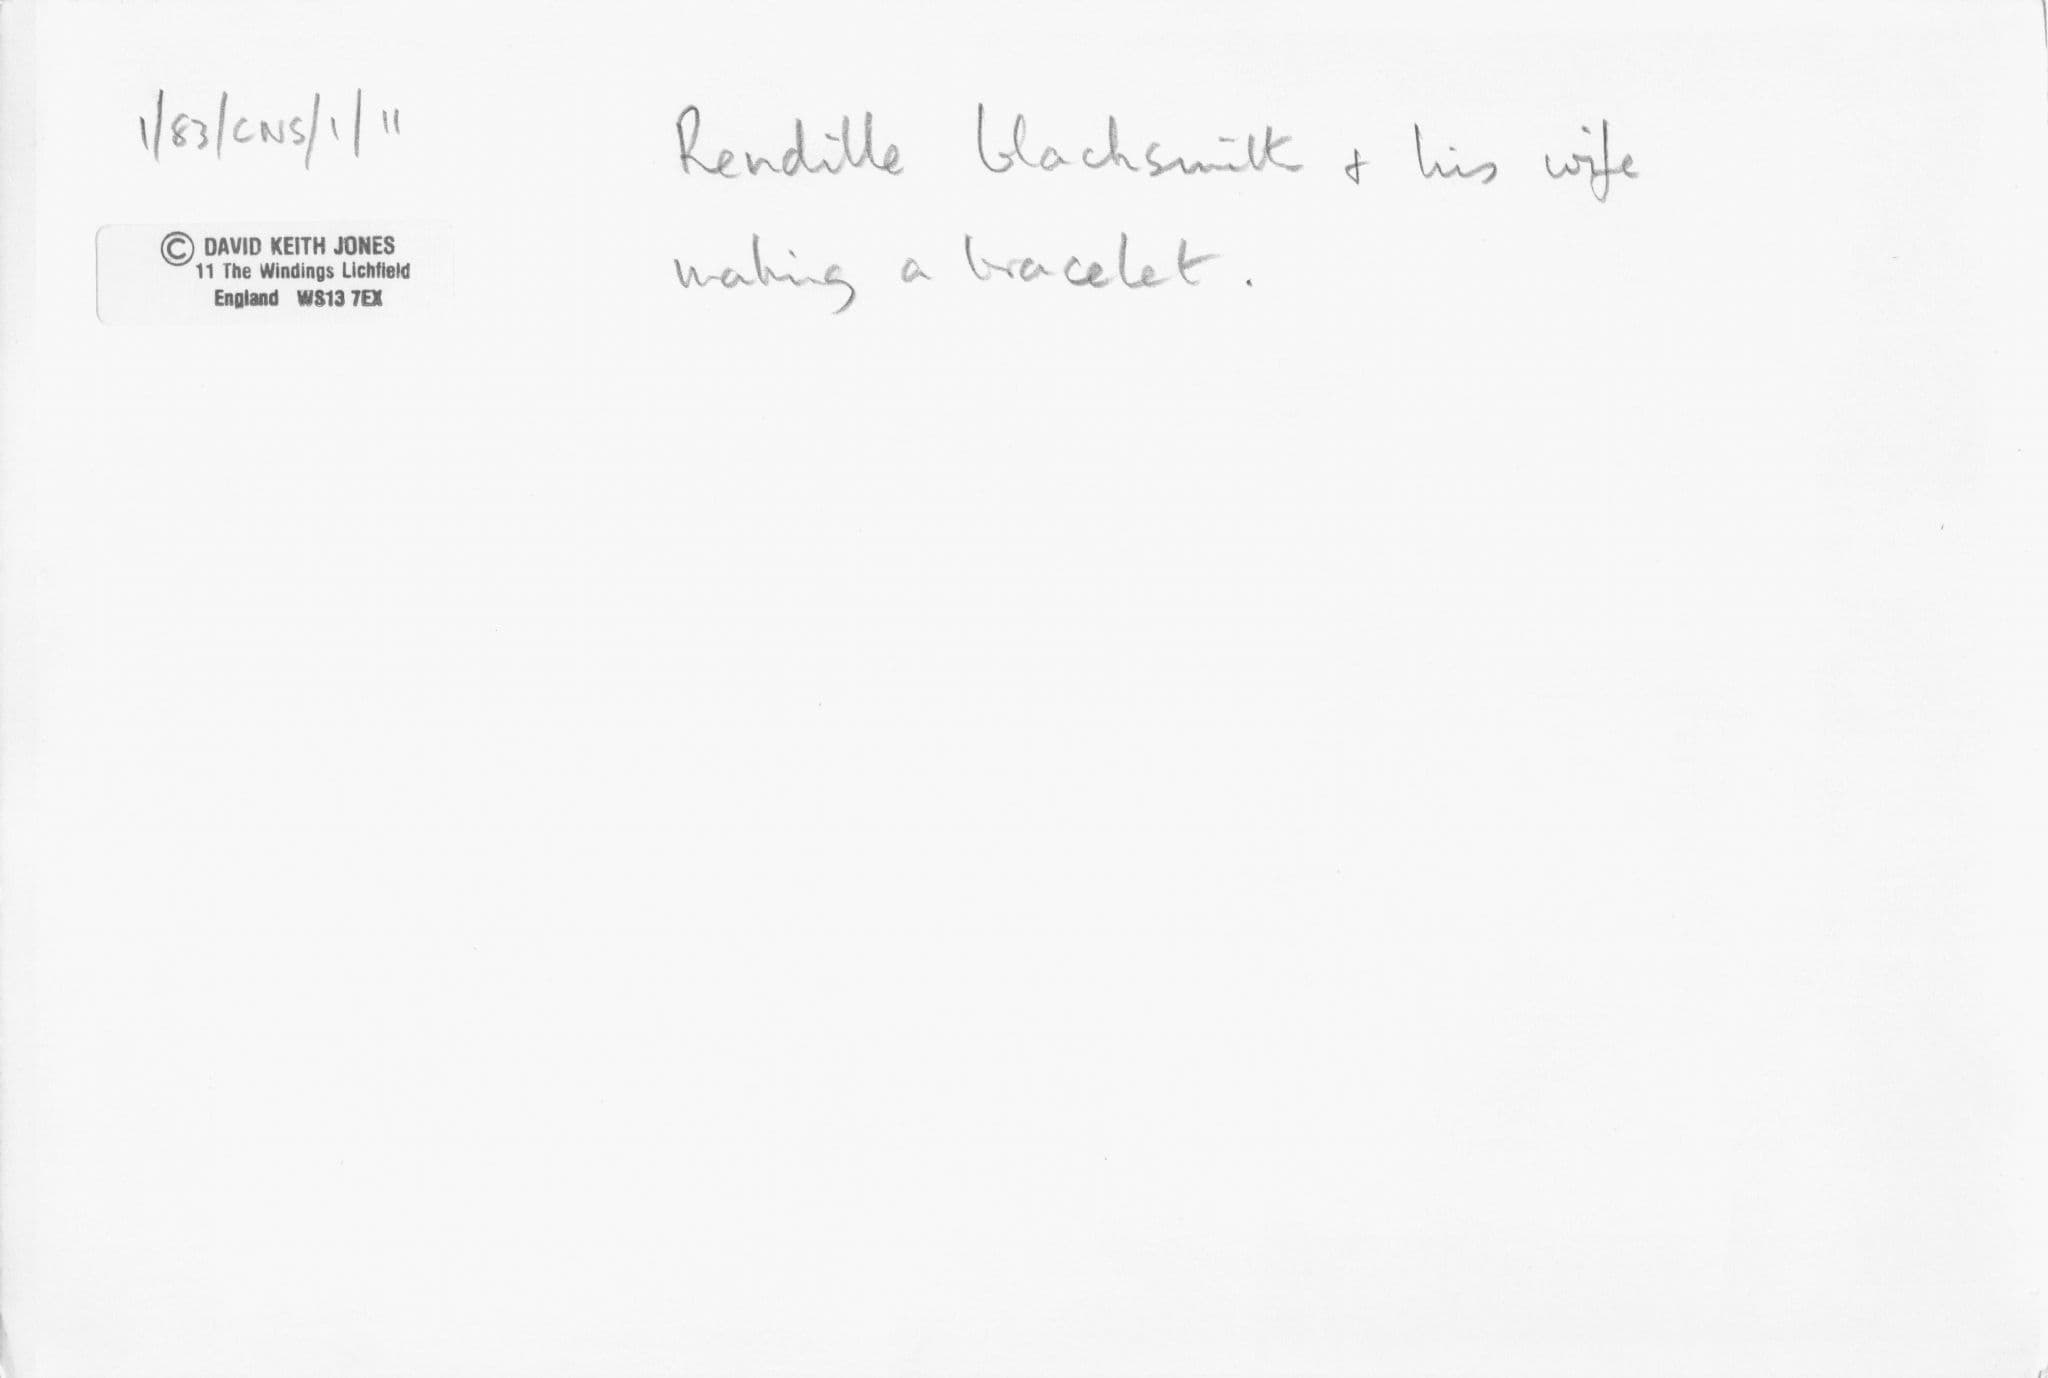 1/83/CNS/1/11
© DAVID KEITH JONES
11 The Windings Lichfield
England WS13 7EX
Rendille blacksmith & his wife
making a bracelet.